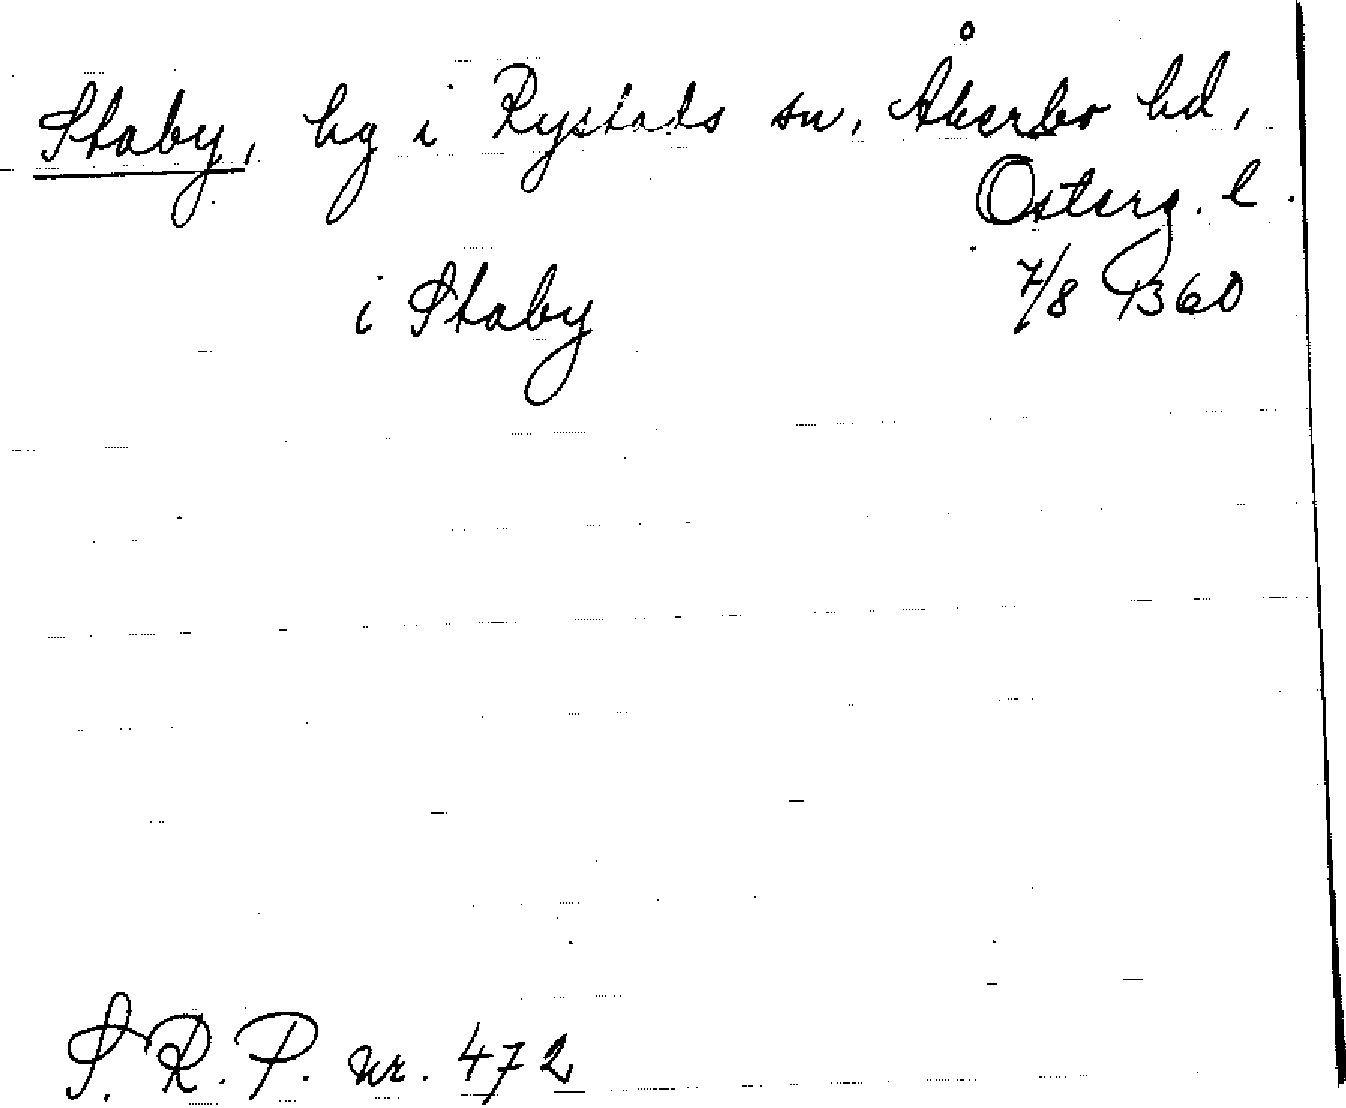 Staby, by i Rystads sn, Åkerbo hd,
Österg. l.
i Staby 7/8 1360
S. R. P. nr. 472